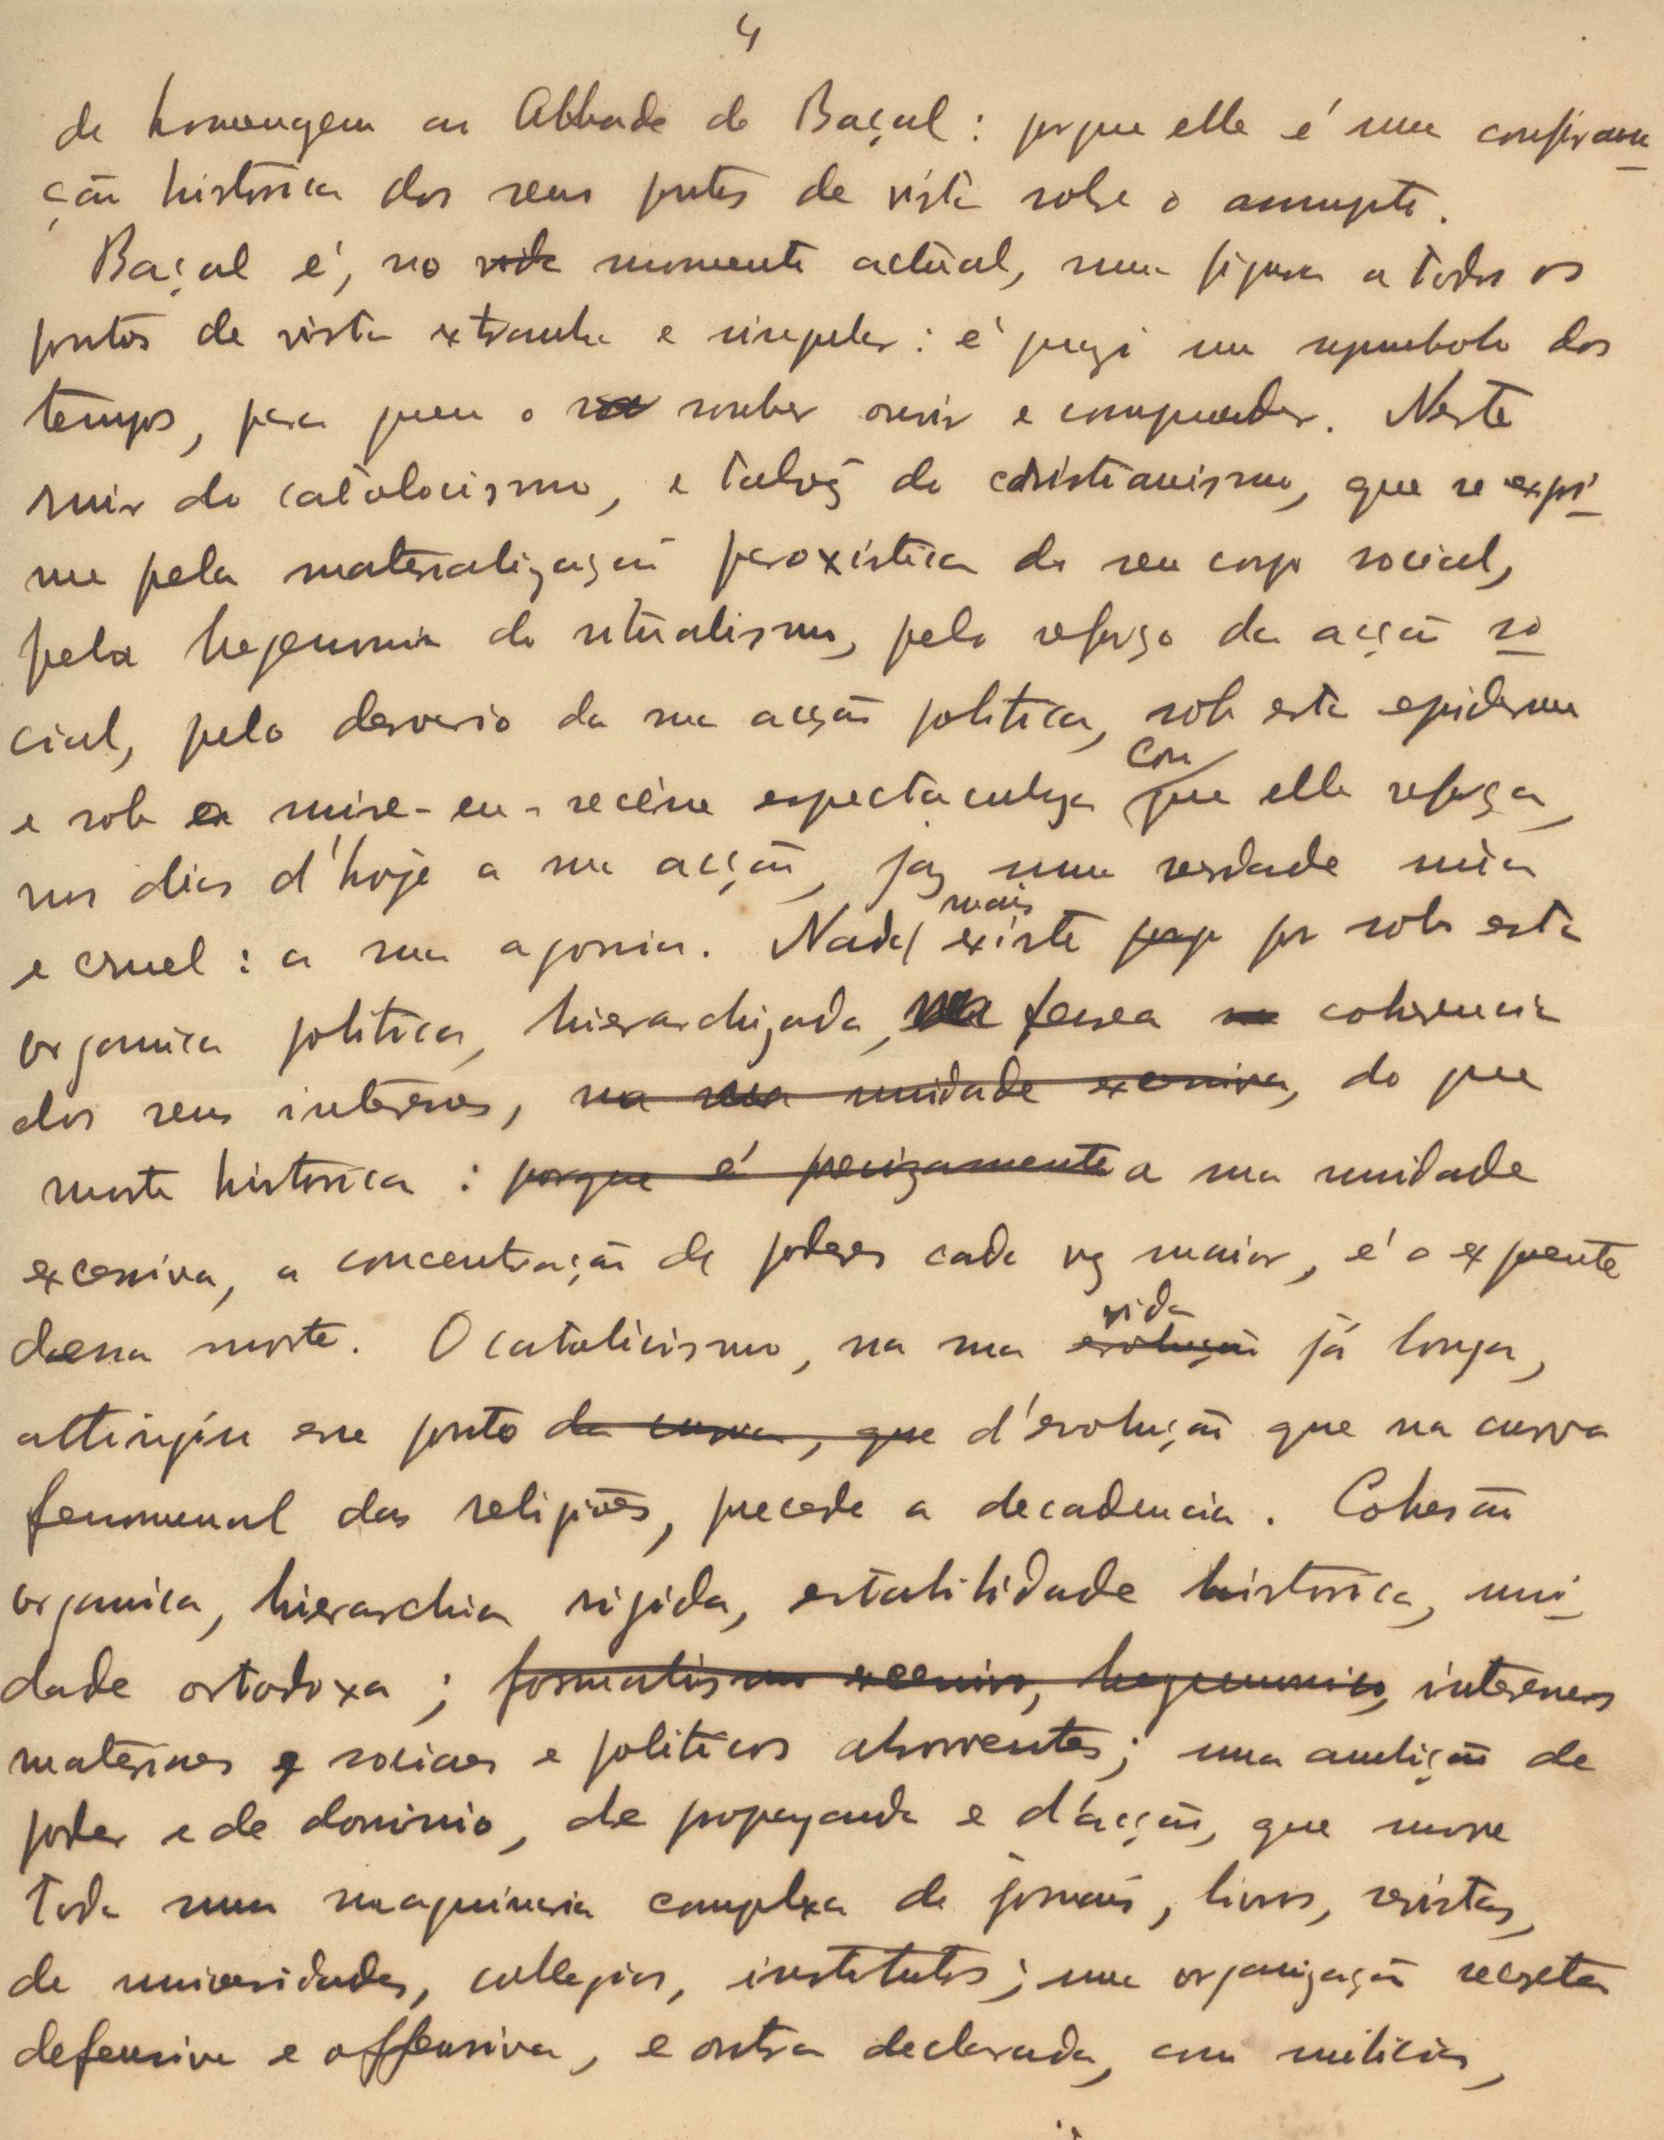 4
de homenagem ao Abbade de Baçal: porque elle é uma confirma
ção historica dos seus pontos de vista sobre o assumpto.
Baçal é, no vida momento actual, uma figura a todos os
pontos de vista extranha e singular: é quazi um symbolo dos
tempos, para quem o souber ouvir e comprehender. Neste
ruir do catolocismo, e talvez do christianismo, que se expri
me pela materialização paroxistica do seu corpo social,
pela hegemonia do ritualismo, pelo reforço da acção so
cial, pelo desvario da sua acção politica, sob esta epiderme
e sob a mise-en-scène espectaculoza com que elle reforça,
nos dias d'hoje a sua acção, jaz uma verdade nùa
e cruel: a sua agonia. Nada mais existe por sob esta
organica politica, hierarchizada, ferrea coherencia
dos seus interesses, na sua unidade excessiva, do que
morte historica: porque é precizamente a sua unidade
excessiva, a concentração de poderes cada vez maior, é o expoente
dessa morte. O catolicismo, na sua evolução vida já longa,
attingiu esse ponto da curva, que d'evolução que na curva
fenomenal das religiões, precede a decadencia. Cohesão
organica, hierarchia rigida, estabilidade historica, uni
dade ortodoxa; formalismo excessivo, hegemonico, interesses
materiaes e sociaes e politicos absorventes; uma ambição de
poder e de dominio, de propaganda e d'acção, que move
toda uma maquinaria complexa de jornais, livros, revistas,
de universidades, collegios, institutos; uma organização secreta
defensiva e offensiva, e outra declarada, com milicias,